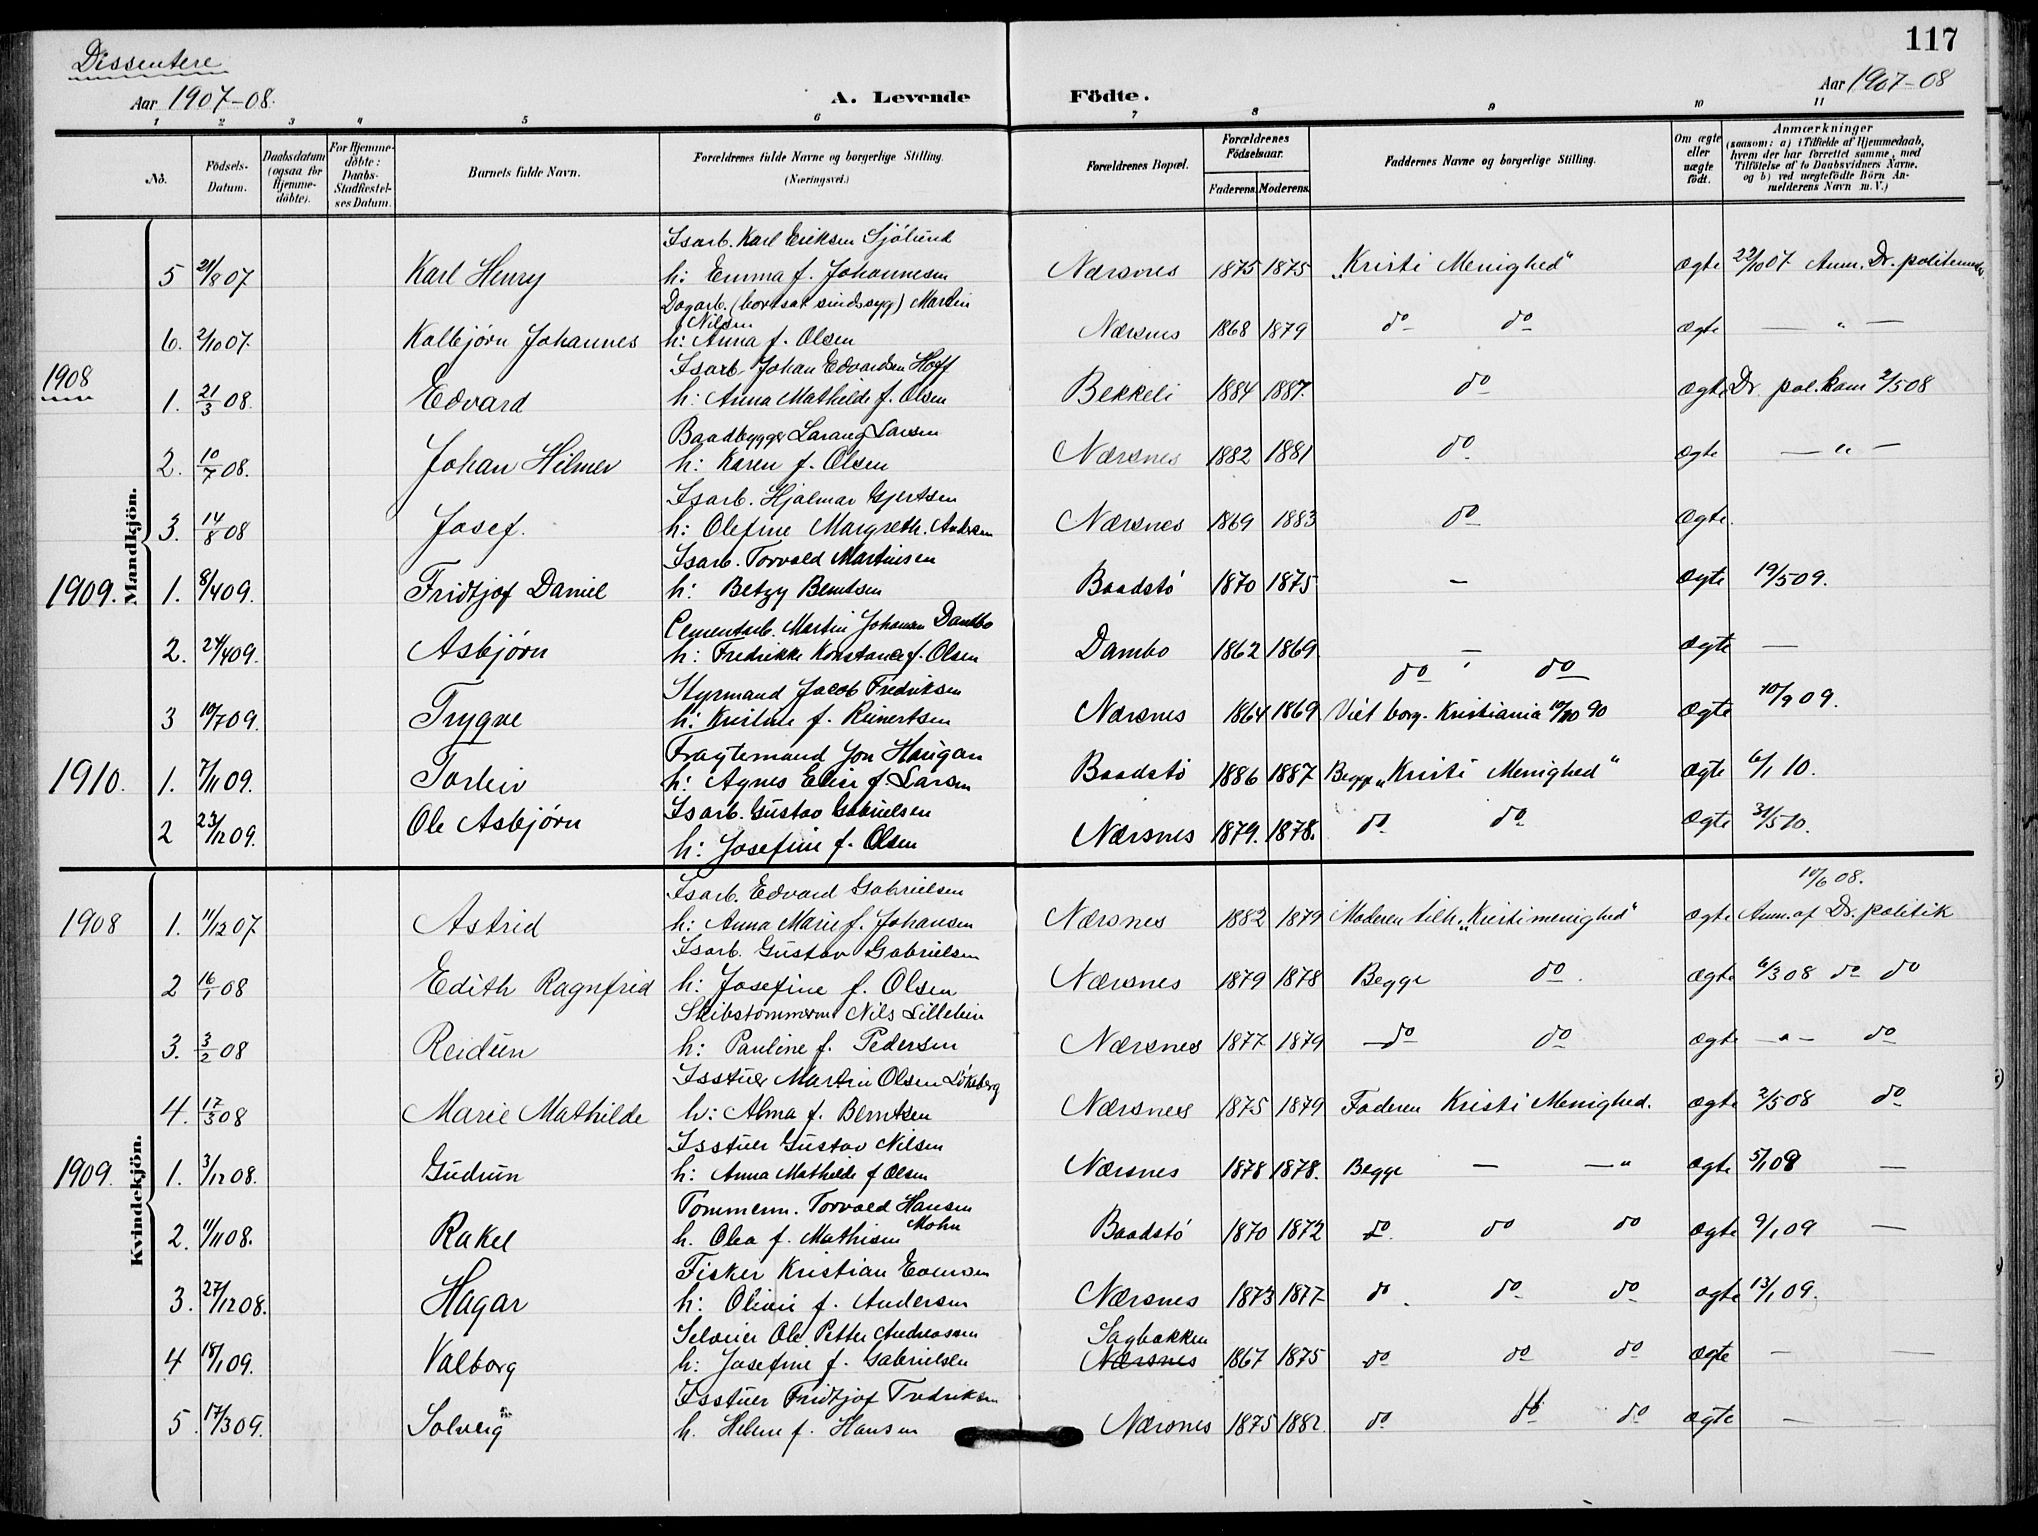 117
Dissentere
Aar 1907-08. A. Levende Födte. Aar 1907-08
1 2 3 4 5 6 7 8 9 10 11
No. Födsels-Datum. Daabsdatum (ogsaa for Hjemme-döbte). For Hjemme-döbte: Daabs-Stadfæstel-ses Datum. Barnets fulde Navn. Forældrenes fulde Navne og borgerlige Stilling. (Næringsvei.) Forældrenes Bopæl. Forældrenes Födselsaar. Faderens. Moderens. Faddernes Navne og borgerlige Stilling. Om ægte eller uægte födt. Anmærkninger (saasom: a) i Tilfælde af Hjemmedaab, hvem der har forrettet samme, med Tilföielse af to Daabsvidners Navne, og b) ved uægtefödte Börn An-melderens Navn m. V.)
Mandkjön.
Isarb. Karl Eriksen Sjölund
5 21/8 07 Karl Henry h: Emma f. Johannesen Nærsnes 1875 1875 "Kristi Menighed" ægte 22/10 07 Anm. Dr. politemedv.
Dagarb. (bortsat sindssyg) Martin Nilsen
6. 2/10 07. Kolbjørn Johannes h: Anna f. Olsen Nærsnes 1868 1879 do do ægte — " —
Isarb. Johan Edvardsen Hoff
1908 1. 21/3 08. Edvard h: Anna Mathilde f. Olsen Bekkeli 1884 1887. do ægte Dr. pol.kam 2/5 08
Baadbygger Laraug Larsen
2. 10/7 08. Johan Hilmer h: Karen f. Olsen Nærsnes 1882 1881 do ægte — " —
Isarb. Hjalmar Gjertsen
3. 14/8 08 Josef. h: Olefine Margreth. Andersen Nærsnes 1869 1883 do ægte.
Isarb. Torvald Martinsen
1909. 1. 8/4 09. Fridtjof Daniel h: Betzy Berntsen Baadstö 1870 1875 — ægte 19/5 09.
Cementarb. Martin Johansen Dambo
2. 24/4 09. Asbjørn h: Fredrikke Konstance f. Olsen Dambo 1862 1869 — ægte —
do do
Styrmand Jacob Fredriksen
3 10/7 09. Trygve h: Kristine f. Reinertsen Nærsnes 1864 1869 Viet borg. Kristiania 10/10 90 ægte 10/9 09.
Fragtemand Jon Haugan
1910. 1. 7/11 09. Torleiv h: Agnes Elise f. Larsen Baadstö 1886 1887 Begge "Kristi Menighed" ægte 6/1 10.
Isarb. Gustav Gabrielsen
2 23/12 09. Ole Asbjörn h: Josefine f. Olsen Nærsnes 1879. 1878. do do ægte 31/5 10.
Kvindekjön.
Isarb. Edvard Gabrielsen 10/6 08.
1908 1. 11/12 07 Astrid h: Anna Marie f. Johansen Nærsnes 1882 1879 Moderen tilh. "Kristi menighed" ægte Anm. af Dr. politik
Isarb. Gustav Gabrielsen
2 16/1 08 Edith Ragnfrid h: Josefine f. Olsen Nærsnes 1879 1878 Begge do. ægte 6/3 08 do do
Skibstømmerm Nils Lillelien
3. 3/2 08 Reidun h: Pauline f. Pedersen Nærsnes 1877 1879 —do do ægte — " — do
Isstuer Martin Olsen Löksberg
4. 17/3 08 Marie Mathilde h: Alma f. Berntsen Nærsnes 1875 1879 Faderen Kristi Menighed. ægte 2/5 08 do
Isstuer Gustav Nilsen
1909. 1. 3/12 08. Gudrun h: Anna Mathilde f Olsen Nærsnes 1878 1878. Begge — — " ægte 5/1 09 —
Tømmerm. Torvald Hansen Mohn
2. 11/11 08. Rakel h. Olea f. Mathisen Baadstö 1870 1872 do. do do ægte 9/1 09 —
Fisker Kristian Evensen
3. 27/12 08. Hagar h: Olivie f. Andersen Nærsnes 1873 1877 do. do do ægte 13/1 09.
Selveier Ole Petter Andreassen Sagbakken
4 18/1 09. Valborg h: Josefine f. Gabrielsen Nærsnes 1867 1875 do do do ægte — —
Isstuer Fridtjof Fredriksen
5 17/3 09. Solveig h. Helene f. Hansen Nærsnes 1875 1882. do do do ægte — —